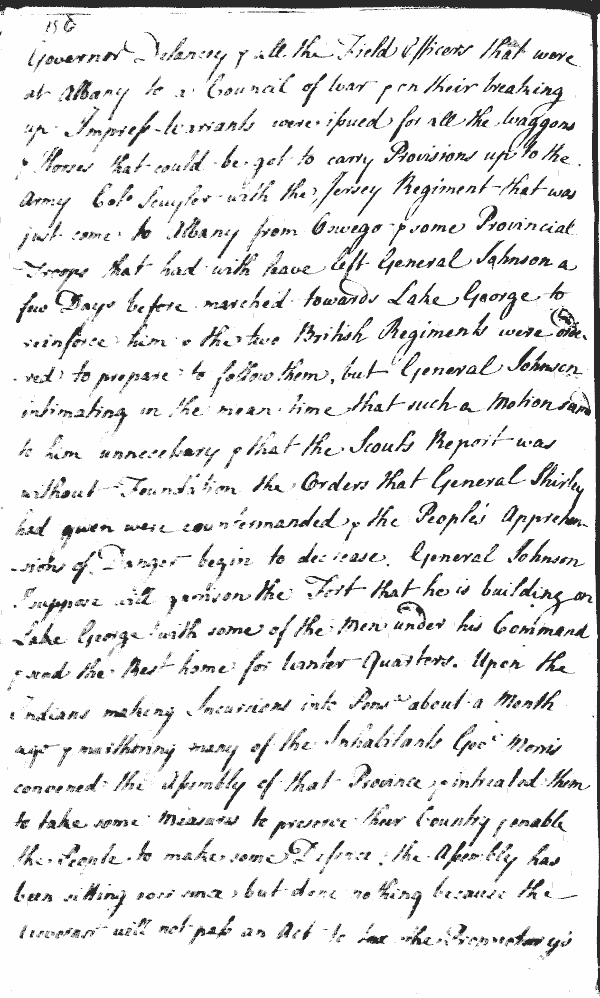 156
Governor Delancey & all the Field Officers that were
at Albany to a Council of War & on their breaking
up Impress Warrants were issued for all the Waggons
& Horses that could be got to carry Provisions up to the
Army Colo Scuyler with the Jersey Regiment that was
just come to Albany from Oswego & some Provincial
Troops that had with leave left General Johnson a
few Days before marched towards Lake George to
reinforce him & the two British Regiments were orde-
red to prepare to follow them, but General Johnson
intimating in the mean time that such a Motion
to him unnecessary & that the Scouts Report was
without Foundation the Orders that General Shirley
had given were countermanded & the People's Apprehen-
-sions of Danger begin to decrease. General Johnson
I suppose will garrison the Fort that he is building on
Lake George with some of the Men under his Command
& send the Rest home for Winter Quarters. Upon the
Indians making Incursions into Pensa about a Month
ago & murthering many of the Inhabitants Govr Morris
convened the Assembly of that Province & intreated them
to take some Measures to preserve their Country & enable
the People to make some Defence; the Assembly has
been sitting ever since, but done nothing because the
Governor will not pass an Act to tax the Proprietary's